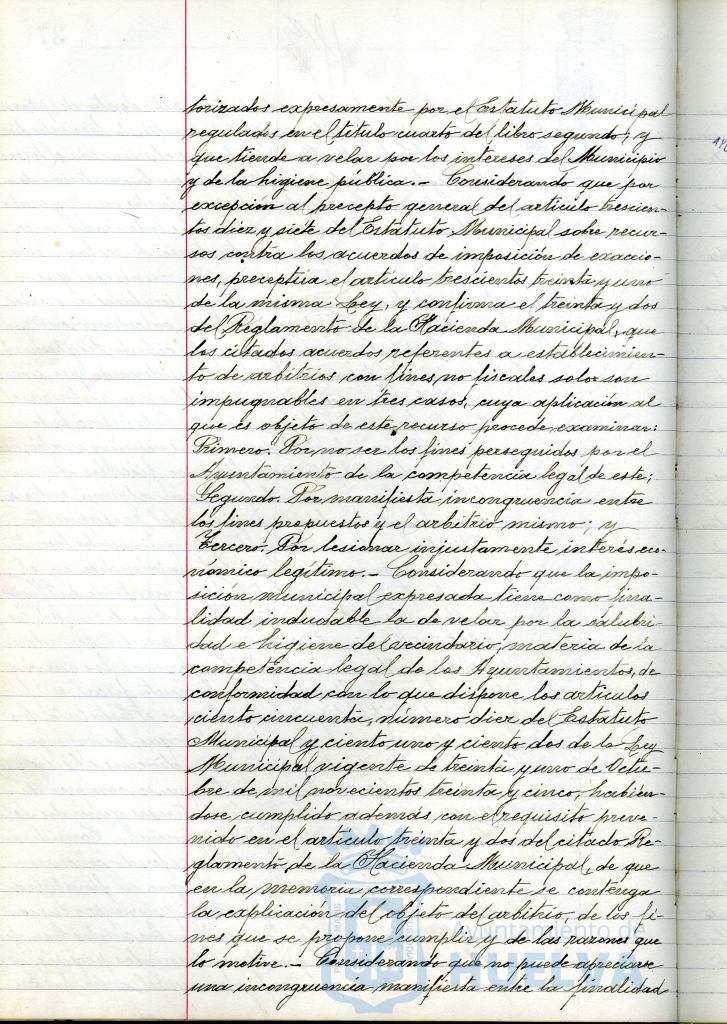 torizados expresamente por el Estatuto Municipal
regulados en el título cuarto del libro segundo; y
que tiende a velar por los intereses del Municipio
y de la higiene pública.- Considerando que por
excepción al precepto general del artículo trescien-
tos diez y siete del Estatuto Municipal sobre recur-
sos contra los acuerdos de imposición de exaccio-
nes, preceptúa el artículo trescientos treinta y uno
de la misma Ley, y confirma el treinta y dos
del Reglamento de la Hacienda Municipal, que
los citados acuerdos referentes a establecimien-
to de arbitrios con fines no fiscales solo son
impugnables en tres casos, cuya aplicación al
que es objeto de este recurso procede examinar:
Primero. Por no ser los fines perseguidos por el
Ayuntamiento de la competencia legal de este;
Segundo. Por manifiesta incongruencia entre
los fines propuestos y el arbitrio mismo; y
Tercero. Por lesionar injustamente interés eco-
nómico legítimo.- Considerando que la impo-
sición municipal expresada tiene como fina-
lidad indudable la de velar por la salubri-
dad e higiene del vecindario, materia de la
competencia legal de los Ayuntamientos, de
conformidad con lo que dispone los artículos
ciento cincuenta, número diez del Estatuto
Municipal y ciento uno y ciento dos de la Ley
Municipal vigente de treinta y uno de Octu-
bre de mil novecientos treinta y cinco, habién-
dose cumplido además con el requisito preve-
nido en el artículo treinta y dos del citado Re-
glamento de la Hacienda Municipal, de que
en la memoria correspondiente se contenga
la explicación del objeto del arbitrio, de los fi-
nes que se propone cumplir y de las razones que
lo motive.- Considerando que no puede apreciarse
una incongruencia manifiesta entre la finalidad
Ayuntamiento de